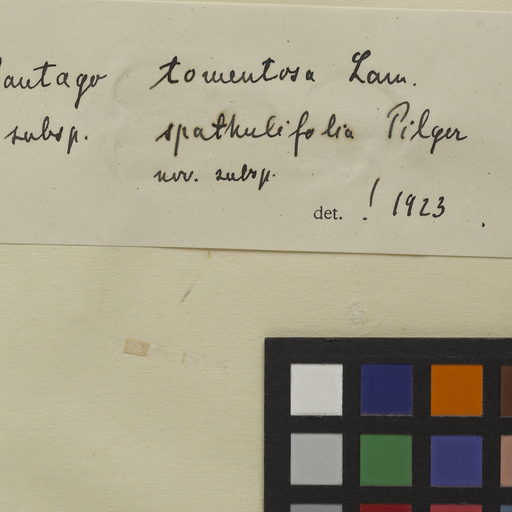 lantago tomentosa Lam.
subsp. spathulifolia Pilger
nov. subsp.
det. ! 1923